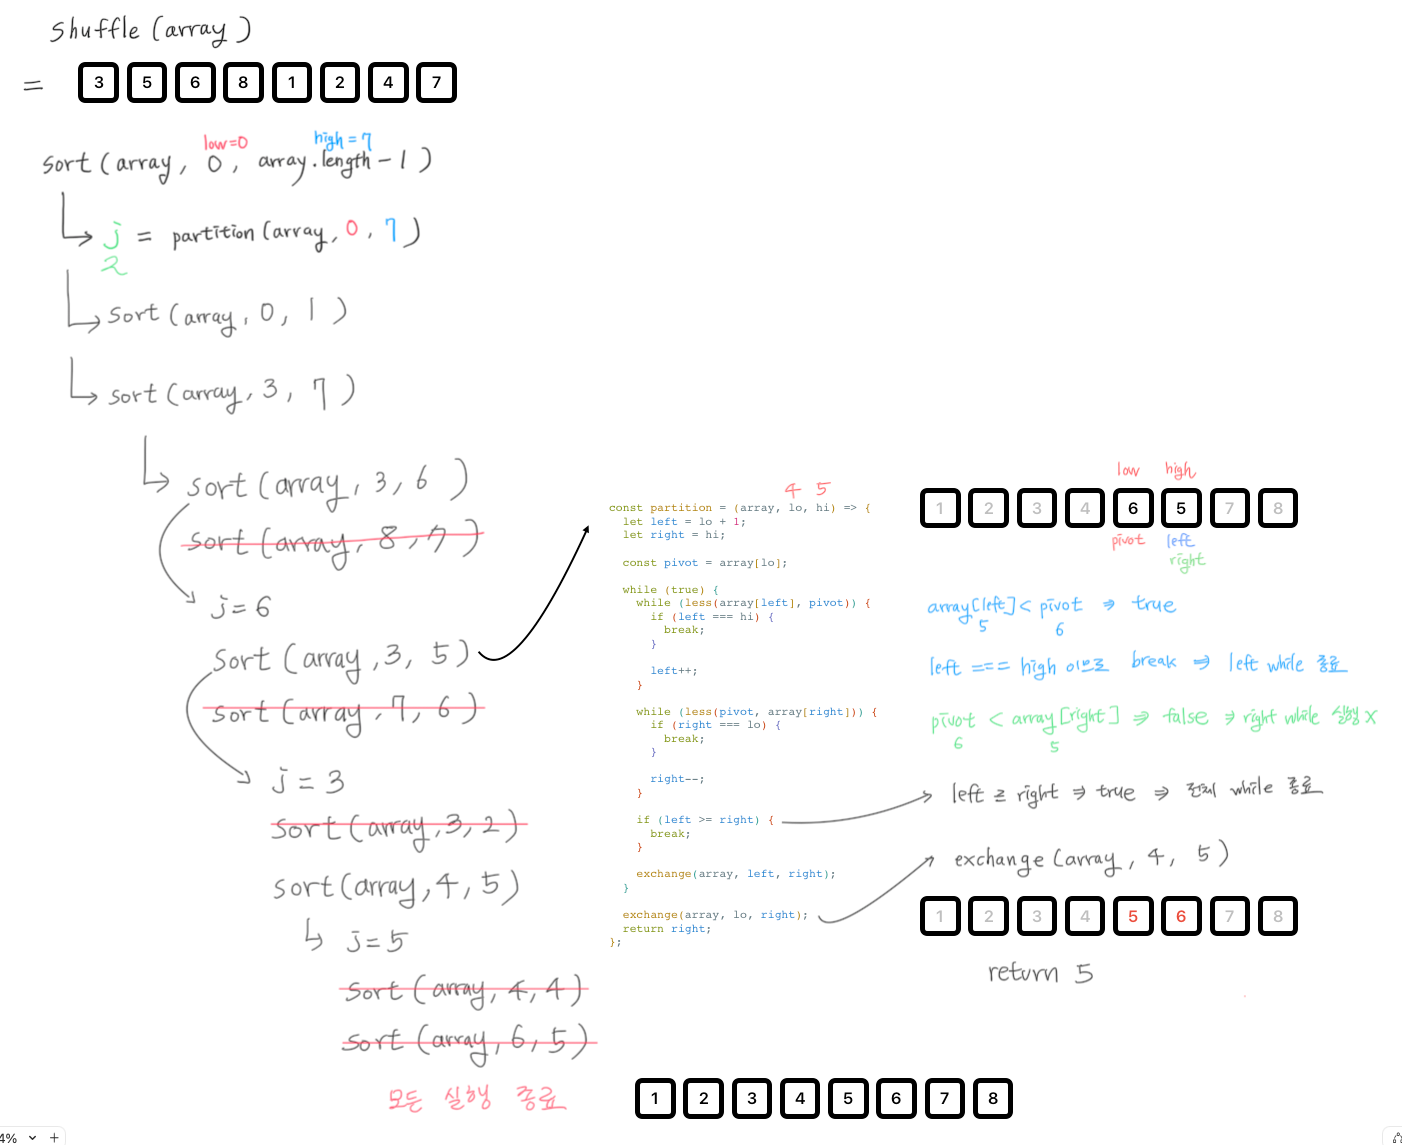 shuffle (array)
= 3 5 6 8 1 2 4 7
low=0 high=7
sort (array, 0, array.length-1)
j = partition (array, 0, 7)
2
sort (array, 0, 1)
sort (array, 3, 7)
sort (array, 3, 6)
sort (array, 8, 7)
j=6
sort (array, 3, 5)
sort (array, 7, 6)
j=3
sort (array, 3, 2)
sort (array, 4, 5)
j=5
sort (array, 4, 4)
sort (array, 6, 5)
모든 실행 종료
4 5
const partition = (array, lo, hi) => {
let left = lo + 1;
let right = hi;
const pivot = array[lo];
while (true) {
while (less(array[left], pivot)) {
if (left === hi) {
break;
}
left++;
}
while (less(pivot, array[right])) {
if (right === lo) {
break;
}
right--;
}
if (left >= right) {
break;
}
exchange(array, left, right);
}
exchange(array, lo, right);
return right;
};
low high
1 2 3 4 6 5 7 8
pivot left
right
array[left] < pivot ⇒ true
5 6
left === high 이므로 break ⇒ left while 종료
pivot < array[right] ⇒ false ⇒ right while 실행 X
6 5
left ≥ right ⇒ true ⇒ 전체 while 종료
exchange (array, 4, 5)
1 2 3 4 5 6 7 8
return 5
1 2 3 4 5 6 7 8
4%